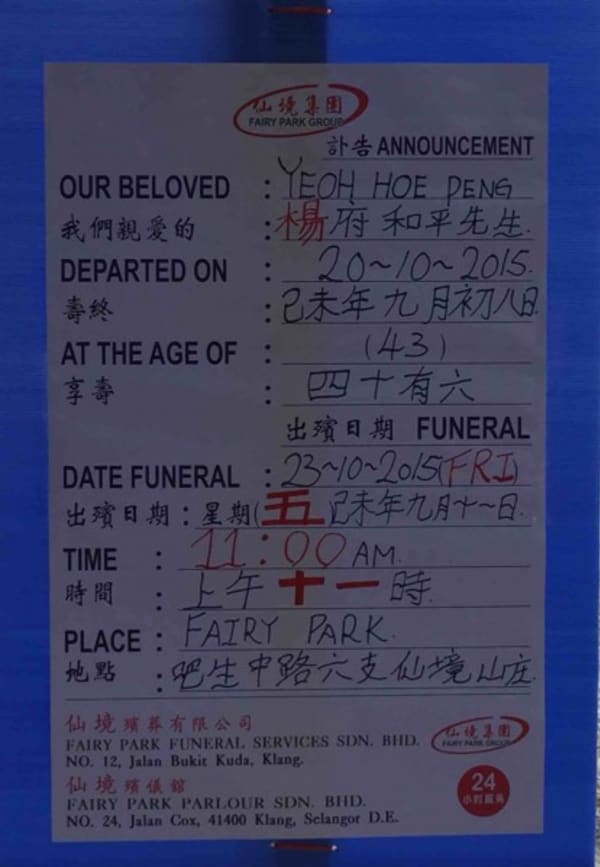 仙境集團
FAIRY PARK GROUP
訃告 ANNOUNCEMENT
OUR BELOVED : YEOH HOE PENG
我們親愛的 : 楊府和平先生.
DEPARTED ON : 20~10~2015.
壽終 : 己未年九月初八日.
AT THE AGE OF : (43)
享壽 : 四十有六
出殯日期 FUNERAL
DATE FUNERAL : 23~10~2015(FRI)
出殯日期 : 星期(五)己未年九月十一日.
TIME : 11:00 AM.
時間 : 上午十一時.
PLACE : FAIRY PARK.
地點 : 吧生中路六支仙境山庄.
仙境殯葬有限公司
FAIRY PARK FUNERAL SERVICES SDN. BHD.
NO. 12, Jalan Bukit Kuda, Klang.
仙境殯儀館
FAIRY PARK PARLOUR SDN. BHD.
NO. 24, Jalan Cox, 41400 Klang, Selangor D.E.
仙境集團
FAIRY PARK GROUP
24
小时服务